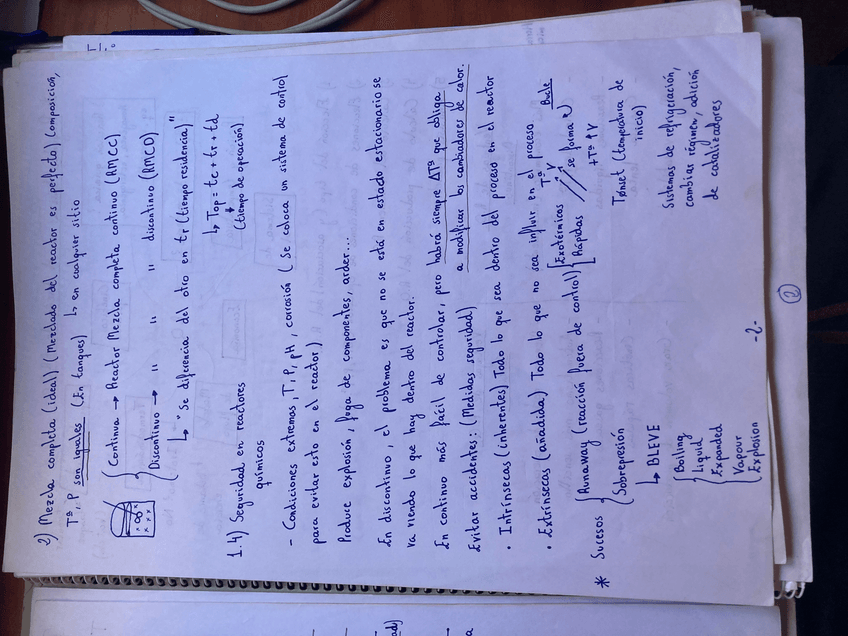 2) Mezcla completa (ideal) (Mezclado del reactor es perfecto) (composición,
Tª, P son iguales (En tanques) ↳ en cualquier sitio
Continua → Reactor Mezcla completa continuo (RMCC)
Discontinuo → " " " discontinuo (RMCD)
↳ "Se diferencia del otro en tr (tiempo residencia)"
↳ Top = tc + tr + td
(tiempo de operación).
1.4) Seguridad en reactores
químicos
- Condiciones extremas, T, P, pH, corrosión (Se coloca un sistema de control
para evitar esto en el reactor)
Produce explosión, fuga de componentes, arder...
En discontinuo, el problema es que no se está en estado estacionario se
va viendo lo que hay dentro del reactor.
En continuo más fácil de controlar, pero habrá siempre ΔTª que obliga
a modificar los cambiadores de calor.
Evitar accidentes: (Medidas seguridad)
• Intrínsecas (inherentes) Todo lo que sea dentro del proceso en el reactor
• Extrínsecas (añadida) Todo lo que no sea influir en el proceso.
* Sucesos
Runaway (reacción fuera de control)
Exotérmicas
Rápidas
Tª V
se forma
Bucle
+Tª ↑V
Sobrepresión
Tonset (temperatura de
inicio)
↳ BLEVE
Boiling
Liquid
Expanded
Vapour
Explosion
Sistemas de refrigeración,
cambiar régimen, adición
de catalizadores
-2-
2